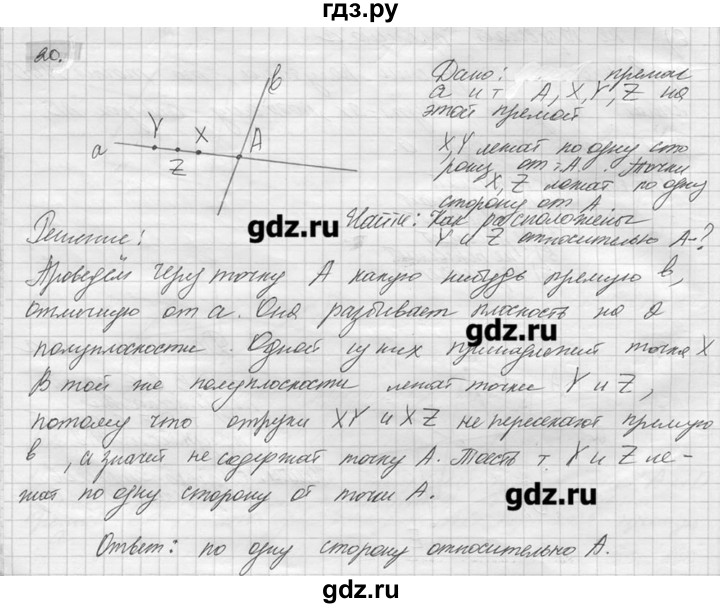 гдз.ру
20.
b
Y X A
a Z
Дано: прямая
a и т A, X, Y, Z на
этой прямой
X, Y лежат по одну сто
рону от т A. Точки
X, Z лежат по одну
сторону от A.
Найти: Как расположены
Y и Z относительно A-?
gdz.ru
Решение:
Проведём через точку A какую нибудь прямую b,
отличную от a. Она разбивает плоскость на 2
gdz.ru
полуплоскости Одной из них принадлежит точка X
В той же полуплоскости лежат точки Y и Z,
потому что отрезки XY и XZ не пересекают прямую
b, а значит не содержат точку A. Тоесть т Y и Z ле-
жат по одну сторону от точки A.
gdz.ru
Ответ: по одну сторону относительно A.
gdz.ru